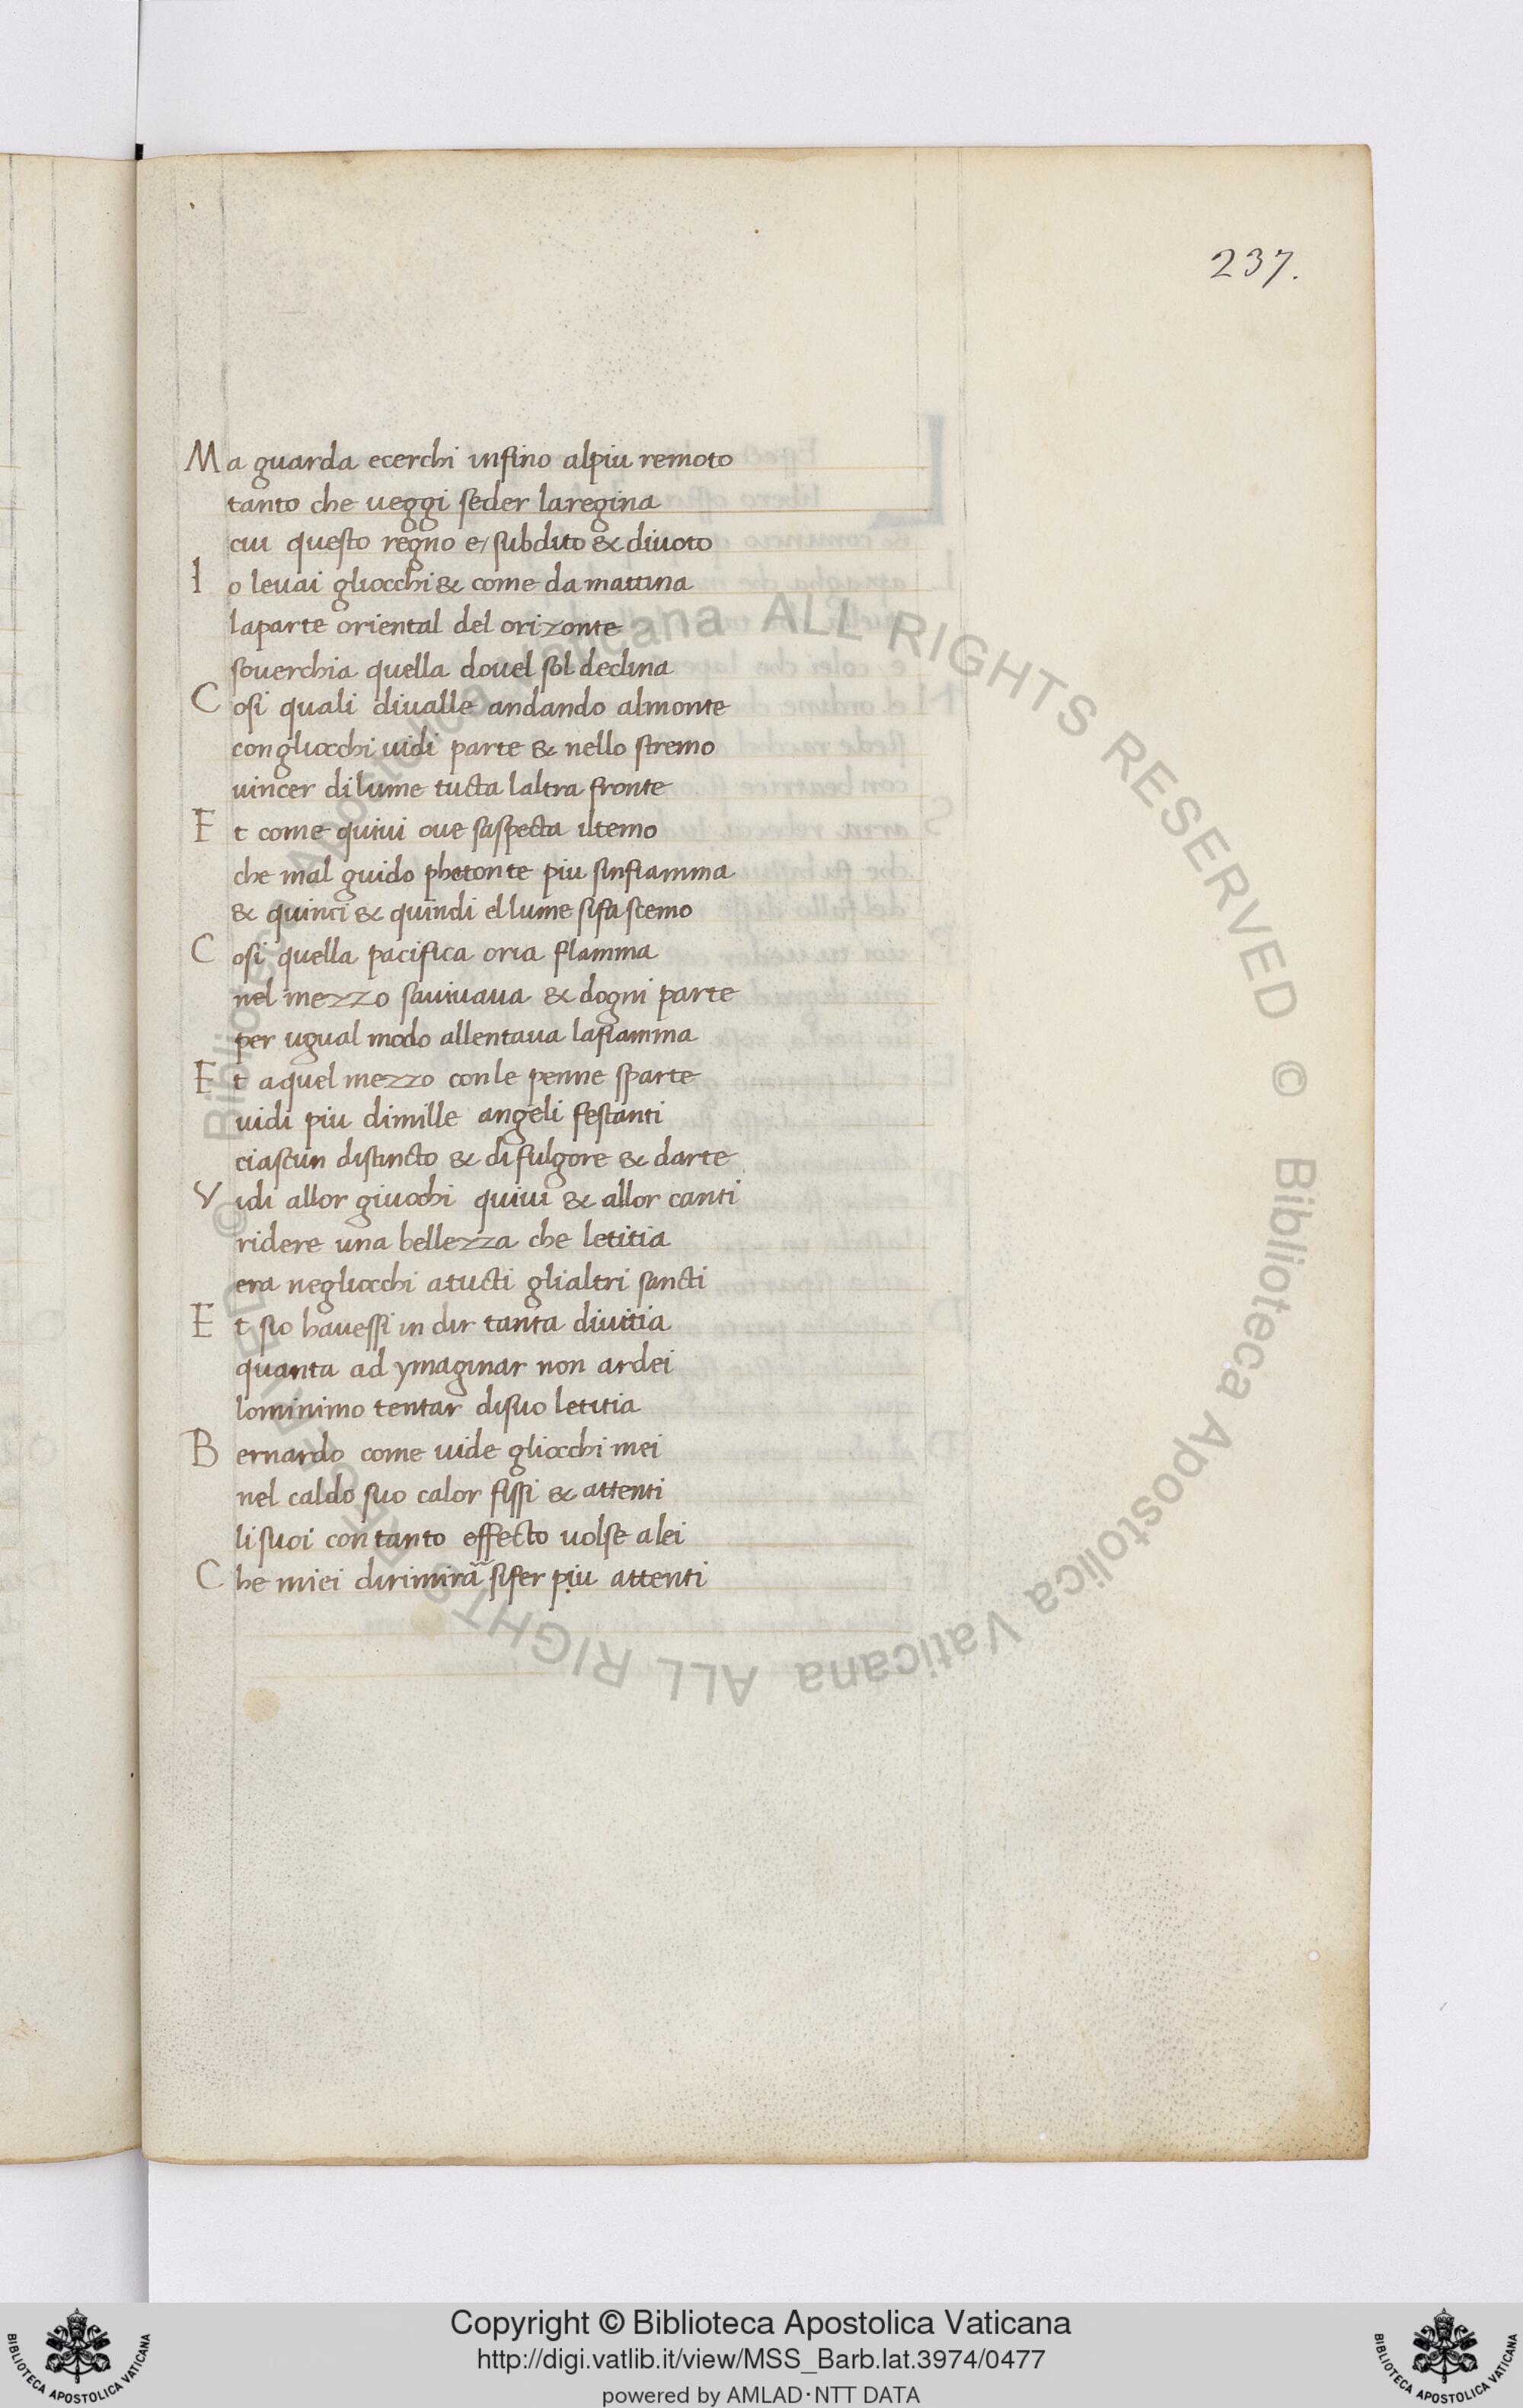 237.
Ma guarda ecerchi infino alpiu remoto
tanto che ueggi seder laregina
cui questo regno e/ subdito & diuoto
Io leuai gliocchi & come da mattina
laparte oriental del orizonte
souerchia quella douel sol declina
Cosi quali diualle andando almonte
congliocchi uidi parte & nello stremo
uincer dilume tucta laltra fronte
Et come quiui oue saspecta iltemo
che mal guido phetonte piu sinfiamma
& quinci & quindi ellume sifa scemo
Cosi quella pacifica oria flamma
nel mezzo sauiuaua & dogni parte
per ugual modo allentaua lafiamma
Et aquel mezzo conle penne sparte
uidi piu dimille angeli festanti
ciascun distincto & difulgore & darte
Vidi allor giuochi quiui & allor canti
ridere una bellezza che letitia
era negliocchi atucti glialtri sancti
Et sio hauessi in dir tanta diuitia
quanta ad ymaginar non ardei
lominimo tentar disuo letitia
Bernardo come uide gliocchi mei
nel caldo suo calor fissi & attenti
lisuoi con tanto effecto uolse alei
Che miei dirimirã sifer piu attenti
© Biblioteca Apostolica Vaticana ALL RIGHTS RESERVED © Biblioteca Apostolica Vaticana ALL RIGHTS RESERVED
Copyright © Biblioteca Apostolica Vaticana
http://digi.vatlib.it/view/MSS_Barb.lat.3974/0477
powered by AMLAD·NTT DATA
BIBLIOTECA APOSTOLICA VATICANA
BIBLIOTECA APOSTOLICA VATICANA